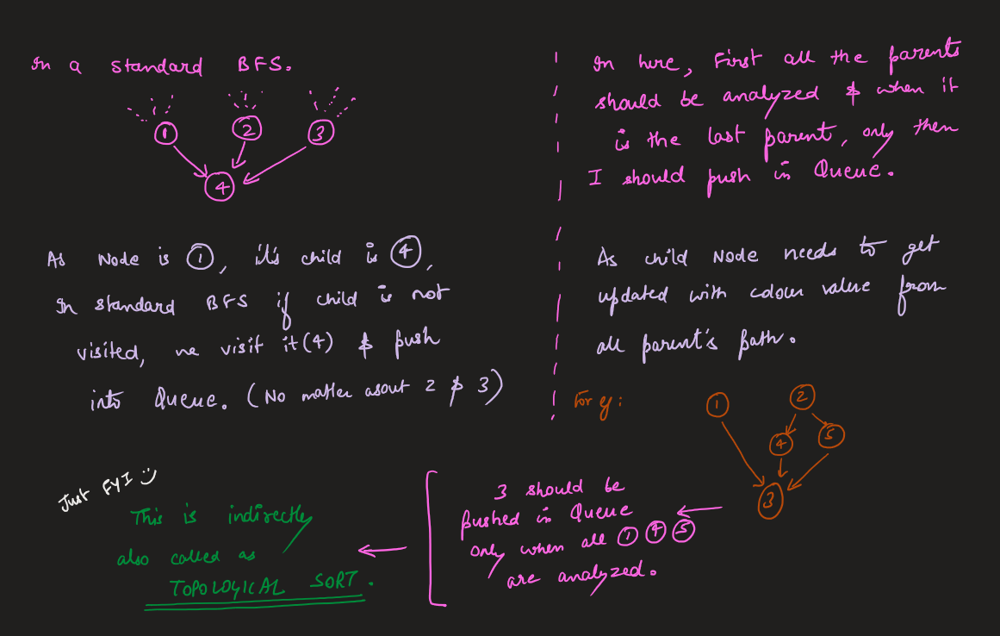 In a standard BFS.
1 2 3
4
As Node is 1, it's child is 4,
In standard BFS if child is not
visited, we visit it(4) & push
into Queue. (No matter about 2 & 3)
In here, First all the parents
should be analyzed & when it
is the last parent, only then
I should push in Queue.
As child Node needs to get
updated with colour value from
all parent's path.
For eg:
1 2
4 5
3
3 should be
pushed in Queue
only when all 1 4 5
are analyzed.
Just FYI :)
This is indirectly
also called as
TOPOLOGICAL SORT.